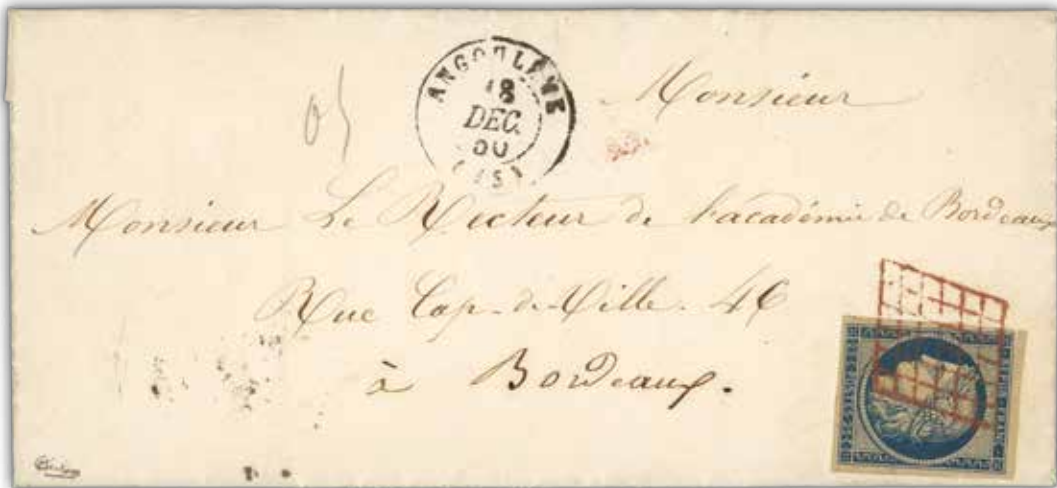 ANGOULÊME
18
DEC.
50
(15)
Monsieur
Monsieur Le Recteur de l'académie de Bordeaux
Rue Cap-de-Ville. 46
à Bordeaux.